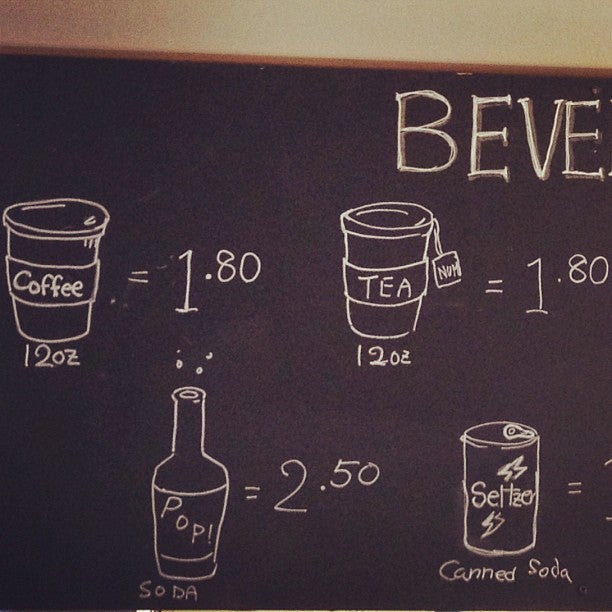 BEVE
Coffee = 1.80
12oz
TEA NUM = 1.80
12oz
POP! = 2.50
SODA
Seltzer = 1
Canned Soda